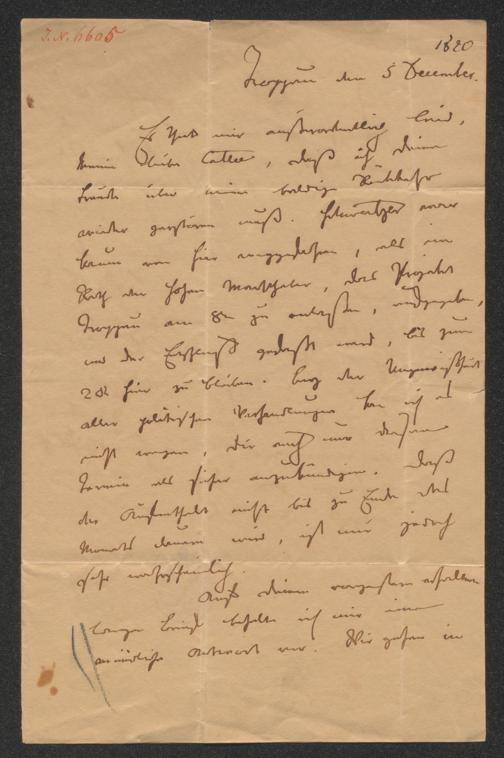 J.N. 6605
1820
Troppau den 5 December.
Es thut mir außerordentlich leid,
meine liebe Lotte, daß ich deine
Freude über meine baldige Rückkehr
wieder zerstören muß. Schwartzer war
kaum von hier weggegangen, als im
Rath der hohen Monarchen, das Projekt
Troppau am 8n zu verlassen, aufgegeben,
und der Entschluß gefaßt ward, bis zum
20n hier zu bleiben. Bey der Ungewißheit
aller politischen Verhandlungen kan ich es
nicht wagen, dir auch nur diesen
Termin als sicher anzukündigen. Daß
der Aufenthalt nicht bis zu Ende des
Monats dauern wird, ist mir jedoch
sehr wahrscheinlich.
Auf deinen vorgestern erhaltenen
langen Brief behalte ich mir eine
mündliche Antwort vor. Wir gehen in